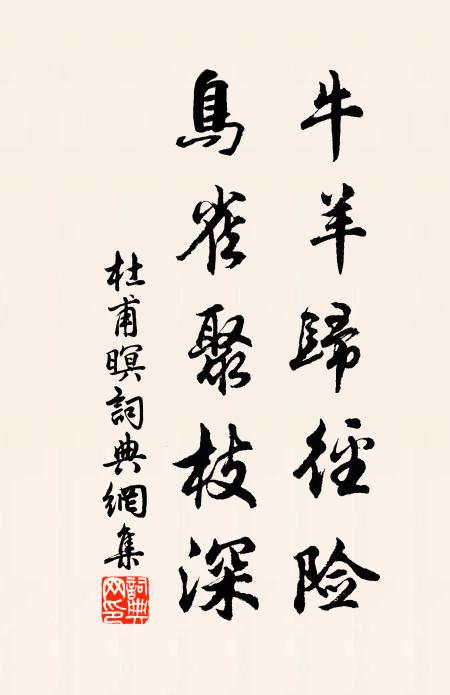 牛羊歸徑险
鳥雀聚枝深
杜甫暝詞典網集
詞典网印